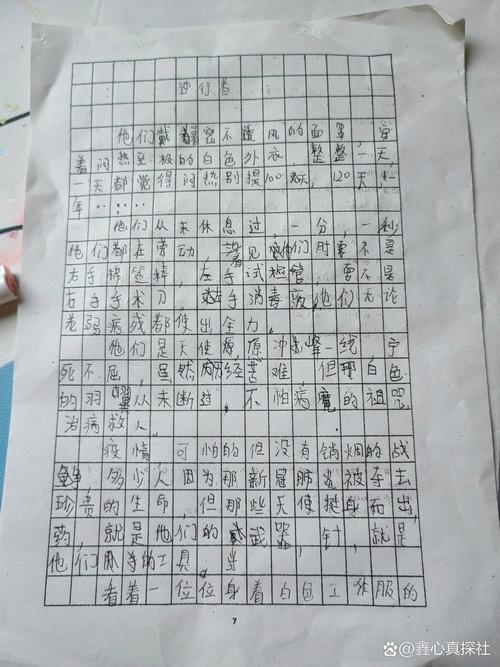 逆行者
他们戴着密不透风的面罩，穿
着闷热至极的白色外衣，整整一天，
一天都觉得闷热别提100天，120天，一
年……
他们从未休息过，一分，一秒
他们都在劳动，看见他们时要不是
右手棉签，左手试管，要不是
右手手术刀，左手消毒液，他们无论
老弱病残都使出全力。
他们是天使，原冲锋一线，宁
死不屈，虽然历经苦难，但那白色
的羽翼从未断过，不怕病魔的祖咒，
治病救人。
疫情，可怕的但没有锅烟的战
争，多少人因为那新冠肺炎被夺去
珍贵的生命，但那些天使挺身而出，
药，就是他们的武器，针，就是
他们的工具。
看着一位位身着白色工作服的
7
鑫心真探社